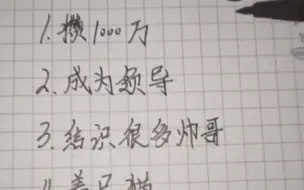 1.攒1000万
2.成为领导
3.结识很多帅哥
4.养只猫